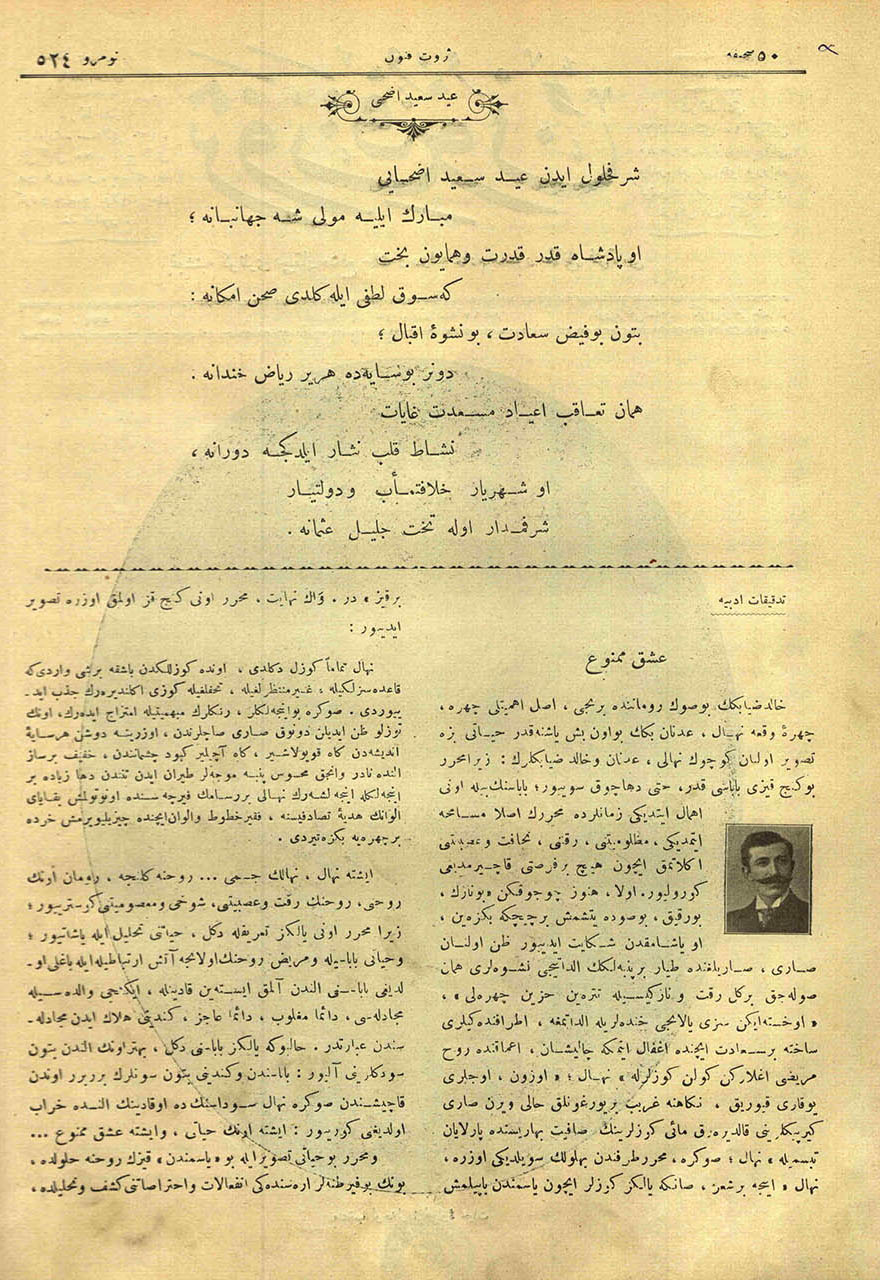 صحیفه ٥٠
ثروت فنون
نومرو ٥٢٤
عید سعید اضحی
شرفحلول ایدن عیـد سـعید اضحـایی
مبـارك ایلیـه مولی شـه جهانبـانه ؛
او پادشـاه قدر قدرت وهمایون بخت
که سـوق لطفی ایله کلدی صحن امکانه :
بتون بوفیض سعادت ، بو نشوۀ اقبال ؛
دونر بوسـایه‌ده هریر ریاض خندانه .
همان تعـاقب اعیـاد مسـعدت غایات
نشـاط قلب نثـار ایلدکجـه دورانه ،
او شـهریار خلافتمـأب و دولتیـار
شرفمـدار اوله تخت جلیـل عثمانه .
تدقیقات ادبیه
عشق ممنوع
خالدضیابکك بوصوك روماننده برنجی ، اصل اهمیتلی چهره ،
چهرۀ وقعه نهـال ، عدنان بكك بواون بش یاشنه‌قدر حیـاتی بزه
تصویر اولنان کوچوك نهالی ، عدنان وخالد ضیابکلرك : زیرا محرر
بوکنج قیزی باباسی قدر ، حتی دها چوق سویور ؛ باباسنك بیله اونی
اهمال ایتدیکی زمانلرده محررك اصلا مسـامحه
ایتمدیکی ، مظلومیتنی ، رقتنی ، نحافت وعصبیتنی
اکلاتمق ایچون هیچ برفرصتی قاچیرمدیغی
کورولیور. اولا ، هنوز چوجوقكن « بونازك ،
بورقیق ، بوصوده یتشمش برچیچکه بکزه‌ین ،
او یاشـامقدن شـکایت ایدییور ظن اولنـان
صـاری ، صـاریلغنده طیار برپنبه‌لکك الداتیجی نشـوه‌لری همان
صوله‌جق برکل رقت و نازکیسیله تتره‌ین حزین چهره‌لی » ،
« اوخسته‌ایکن سنزی یالانجی خنده‌لریله الداتمغه ، اطرافنده‌کیلری
ساخته برسـعادت ایچنده اغفال ایتمکه چالیشـان ، اعماقنده روح
مریضی اغلارکن کولن کوزلرله » نهـال ؛ « اوزون ، اوجلری
یوقاری قیوریق ، نکاهنه غریب بریورغونلق حالی ویرن صاری
کیرپیکلرینی قالدیره‌رق مائی کوزلرینك صافیت بهاریسنده پارلایان
تبسمیله » نهال ؛ صوکره ، محررطرفندن بهلولك سویلدیکی اوزره ،
نهال « اینجه برشعر ، صانکه یالکز کوزلر ایچون یاسمندن یاپیلمش
برقیز » در . واك نهایت ، محرر اونی کنج قز اولمق اوزره تصویر
ایدییور :
نهال تماماً کوزل دکلدی ، اونده کوزللکدن باشقه برشی واردی‌که
قاعده‌سزلکیله ، غیر منتظرلغیله ، تحفلغیله کوزی اکلندیره‌رك جذب ایدـ
ییوردی . صوکره بواینجه‌لکلر ، رنکلرك مبهمیتیله امتزاج ایده‌رك، اونك
توزلو ظن ایدیلن دونوق صاری صاچلرندن ، اوزرینه دوشن هرسـایۀ
اندیشه‌دن کاه قویولاشیر ، کاه آچیلیر کبود چشماندن ، خفیف برساز
النده نادر وانجق محسوس پنبه موجه‌لر طیران ایدن تندن دها زیاده بر
اینجه‌لکله اینجه‌لشه‌رك نهالی بررسامك فیرچه سنده اونوتولمش بقایای
الوانك هدیۀ تصادفیسنه ، فقیرخطوط والوان‌ایچنده چیزیلیویرمش خرده
برچهره‌یه بکزه‌تیردی .
ایشته نهال ، نهالك جسمی ... روحنه کلنجه ، رومان اونك
روحی ، روحنك رقت وعصبیتی، شوخی ومعصومیتنی کوستریور ؛
زیرا محرر اونی یالکز تعریفله دکل ، حیاتی تحلیل ایله یاشاتیور ؛
وحیاتی بابـاسیله ومریض روحنك اولانجه آتش ارتباطیله ایله باغلی اوـ
لدیغی باباسـنی الندن آلمق ایستـه‌ین قادینله ، ایکنجی والده سـیله
مجادله‌سی ، دائما مغلوب ، دائما عاجز ، کندینی هلاك ایدن مجادله‌ـ
سندن عبارتدر . حالبوکه یالکز باباسنی دکل ، بهتر اونك الندن بتون
سودکلرینی آلیور : باباسندن وکندینی بتون سونلرك بربربر اوندن
قاچیشندن صوکره نهال سـوداسنك ده اوقادینك النـده خراب
اولدیغنی کورییور : ایشته اونك حیاتی ، وایشته عشق ممنوع ...
ومحرر بوحیاتی تصویرایله بو « یاسمندن » قیزك روحنه حلولده ،
بونك بوفیرطنه‌لر اره‌سنده‌کی انفعالات واحتراصاتنی کشف وتحلیلده ،